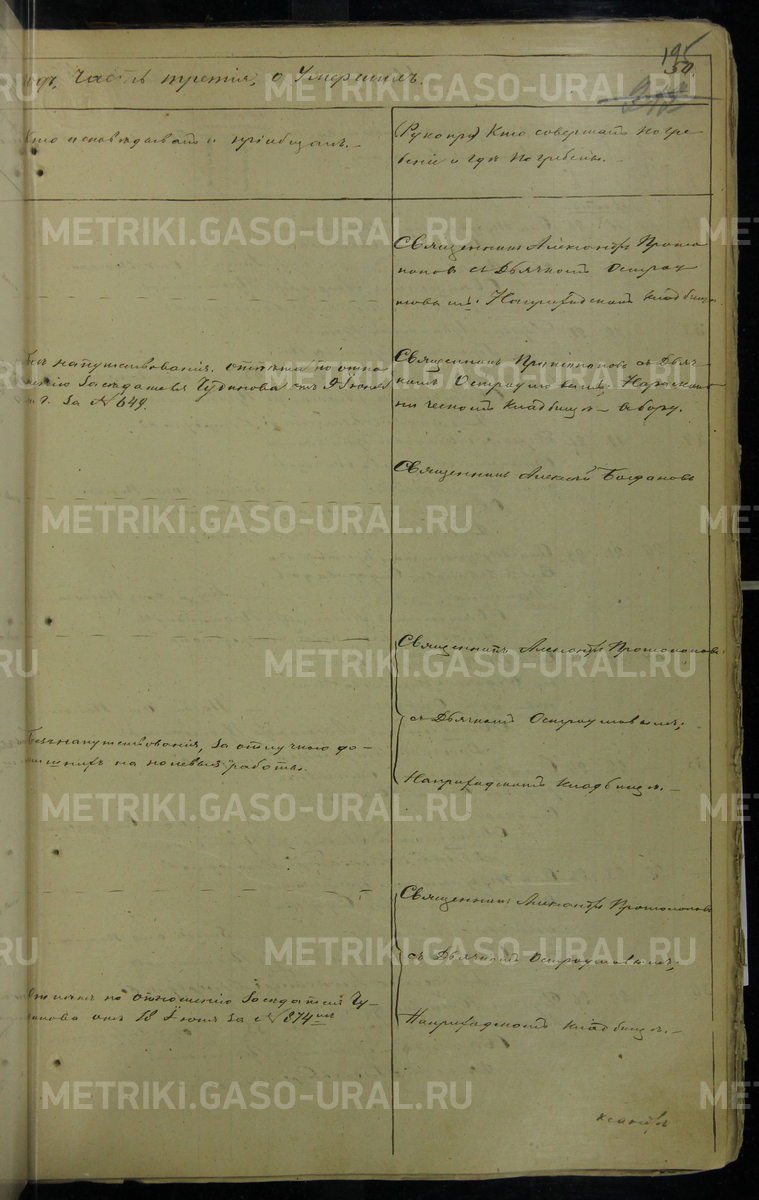 195
50.
Часть третія, о Умершихъ.
Кто исповѣдывалъ и пріобщалъ.
(Рукопри) Кто совершалъ погре-
беніе и гдѣ погребены.
Священникъ Александръ Прото-
поповъ съ Дьячкомъ Остроу-
мовымъ: На приходскомъ кладбищѣ
Безъ напутствованія. отпѣта по отно-
шенію Засѣдателя Чудинова отъ 9 Іюня
за № 649.
Священникъ Протопоповъ съ Дьяч-
комъ Остроумовымъ;
кладбищѣ
Священникъ Алексѣй Богдановъ
Священникъ Александръ Протопоповъ
съ Дьячкомъ Остроумовымъ;
На приходскомъ кладбищѣ.
Безъ напутствованія, за отлучкою до-
машнихъ на полевыя работы.
Священникъ Александръ Протопоповъ
съ Дьячкомъ Остроумовымъ;
На приходскомъ кладбищѣ.
по отношенію Засѣдателя Чу-
динова отъ 18 Іюня за № 874
METRIKI.GASO-URAL.RU